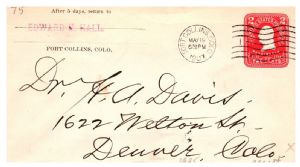 75
After 5 days, return to
EDWARD M HALL
FORT COLLINS, COLO.
FORT COLLINS, COLO.
MAY 16
630PM
Dr. H. A. Davis,
1622 Welton St.
Denver, Colo.